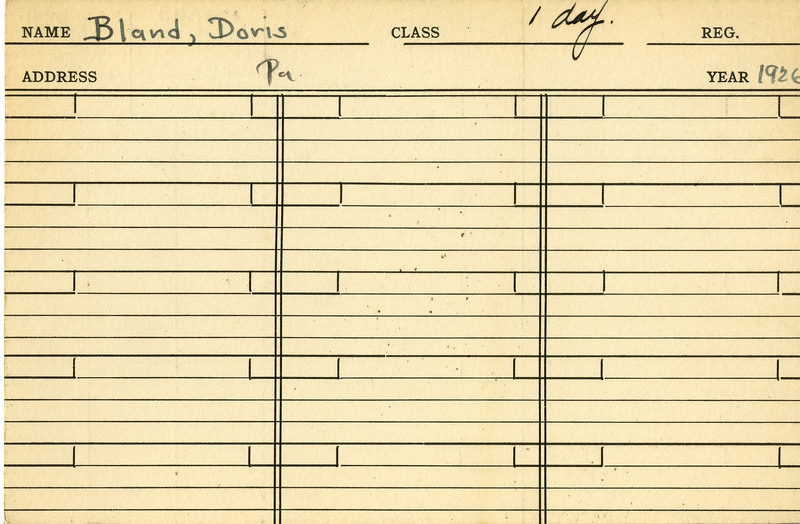 NAME Bland, Doris CLASS 1 day. REG.
ADDRESS Pa YEAR 1926